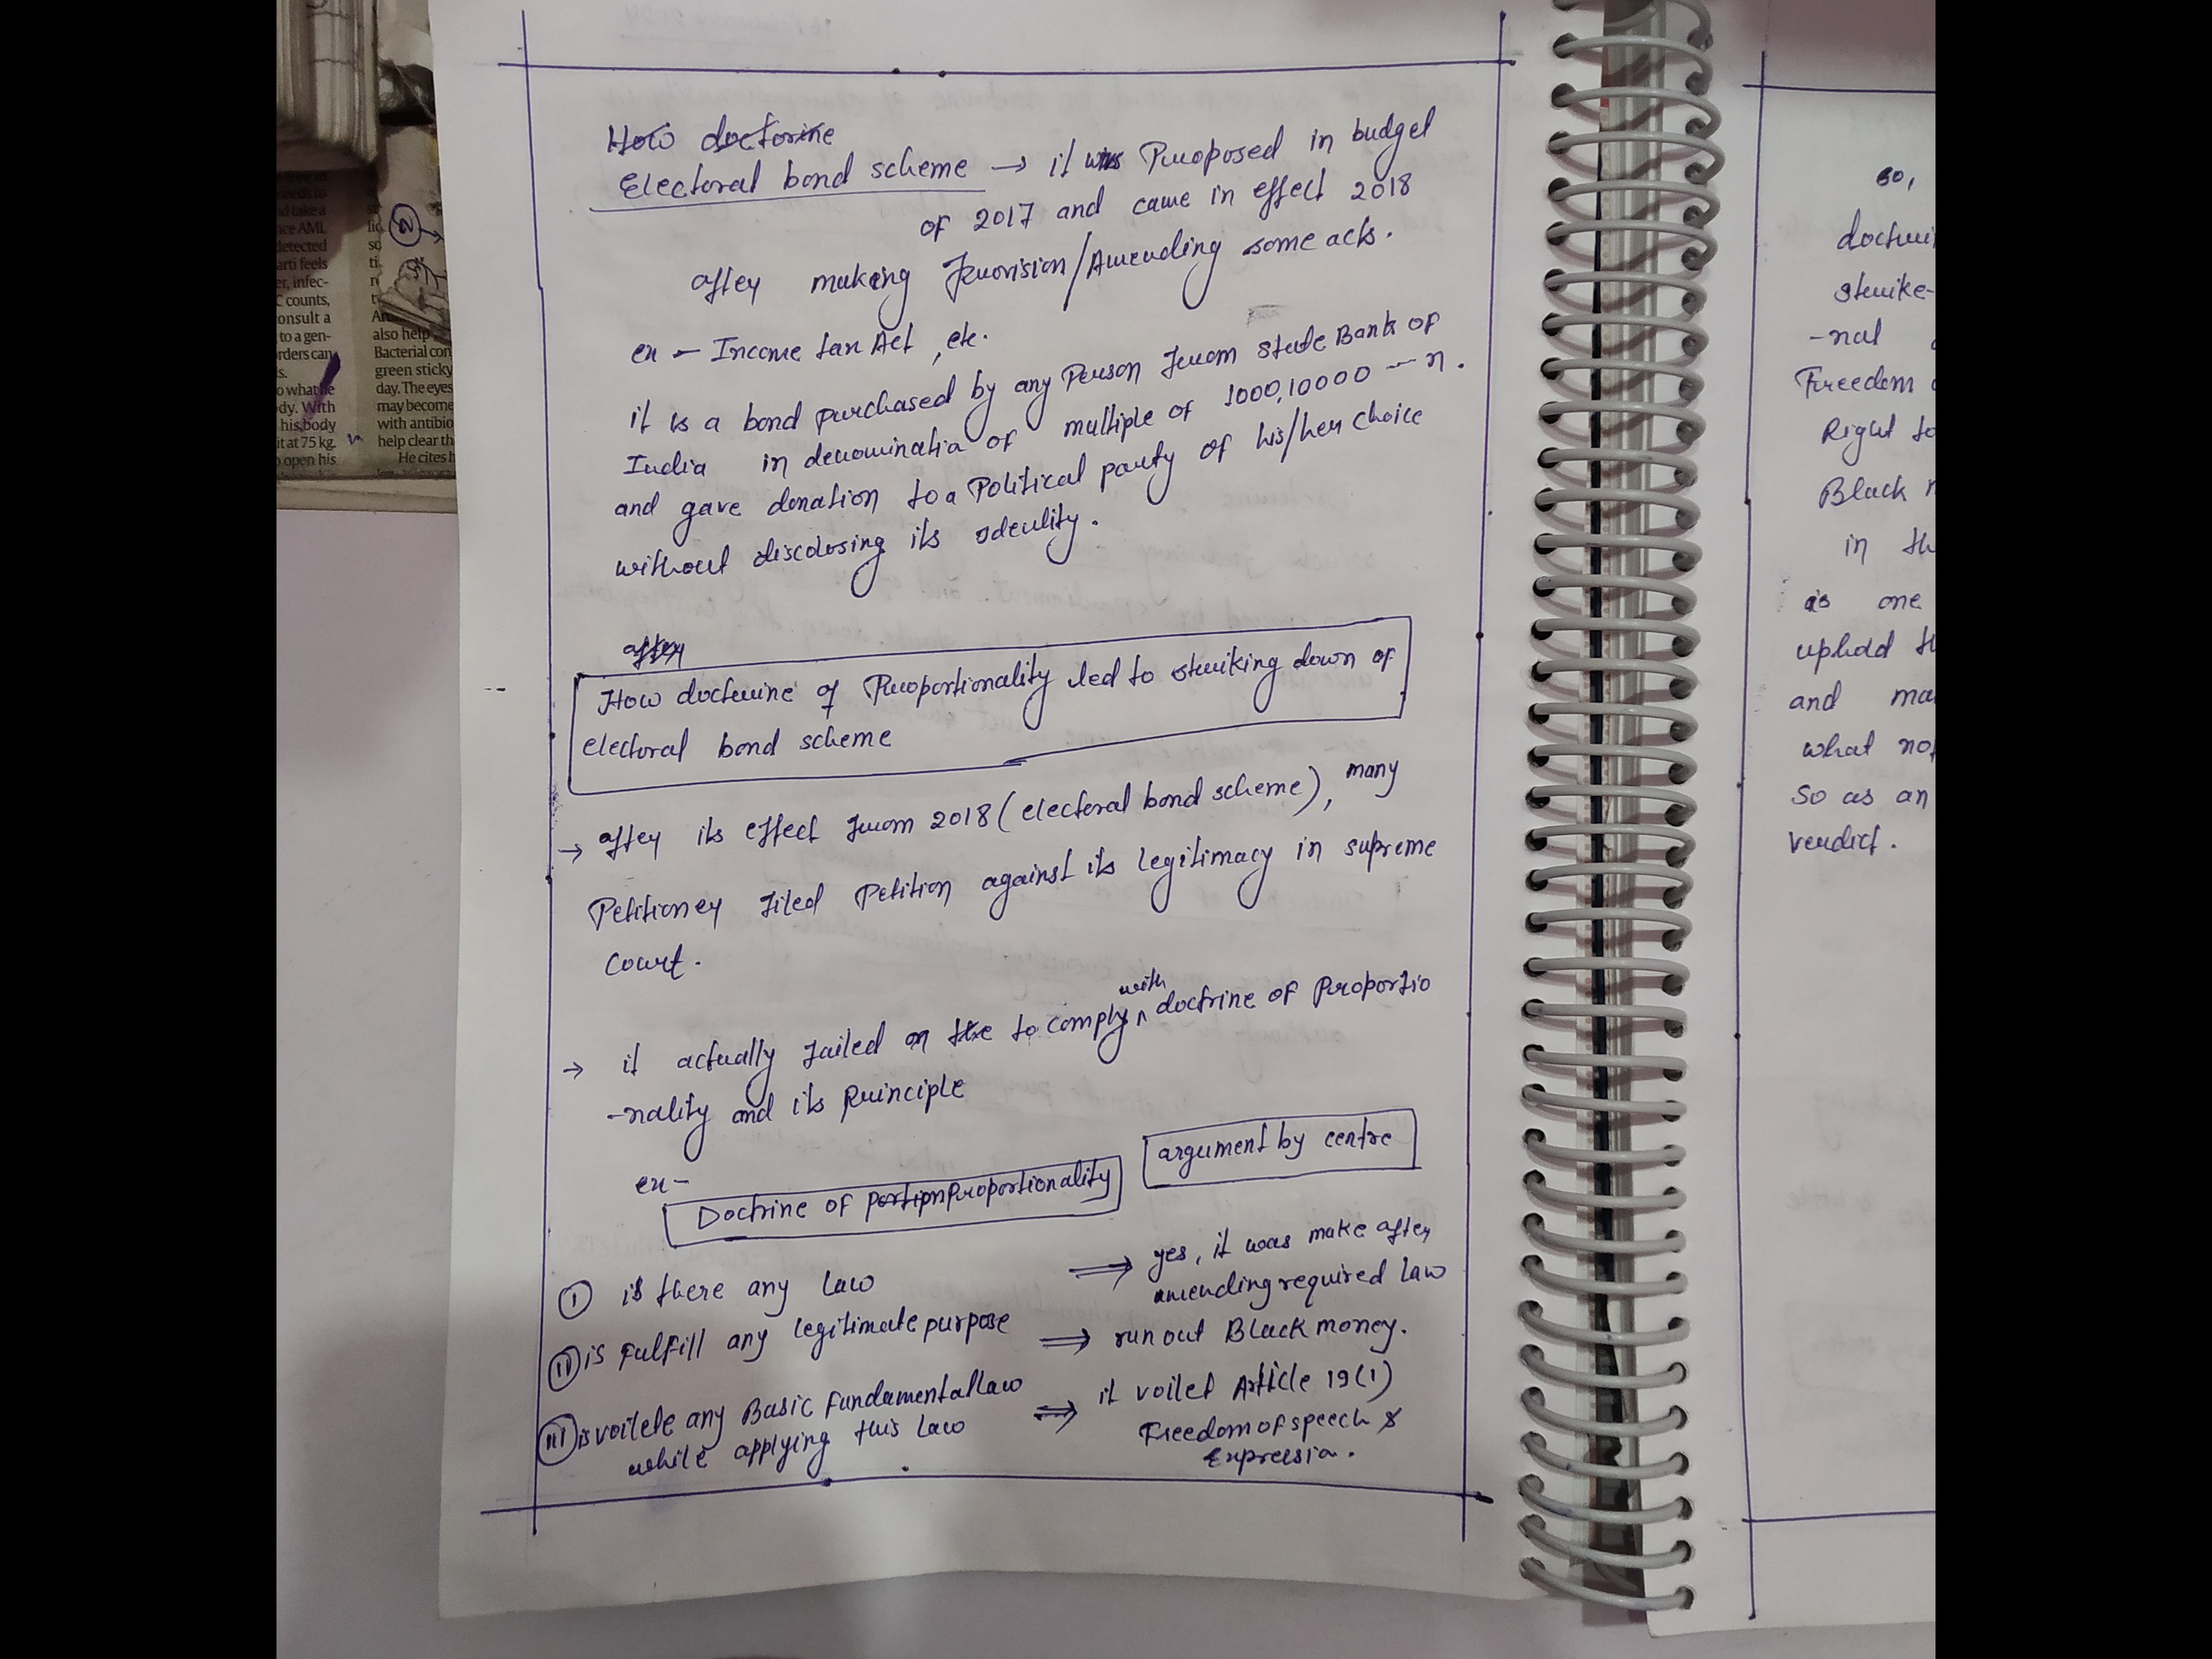 needs to
id take a
nce AMI,
detected
arti feels
er, infec-
C counts,
onsult a
to a gen-
rders can
s.
o what he
dy. With
his body
it at 75 kg.
o open his
2
also help
Bacterial con
green sticky
day. The eyes
may become
with antibio
help clear th
He cites h
How doctorine
Electoral bond scheme → it was Proposed in budget
of 2017 and came in effect 2018
after making provision/Amending some acts.
ex - Income tax Act, etc.
it is a bond purchased by any Person from state Bank of
India in denominatia of multiple of 1000,10000 --- n.
and gave donation to a Political party of his/her choice
without disclosing its identity.
after
How doctrine of Proportionality led to striking down of
electoral bond scheme
→ after its effect from 2018 (electoral bond scheme), many
Petitioner filed Petition against its legitimacy in supreme
court.
→ it actually failed on the to comply with doctrine of Proportio
-nality and its Principle
ex-
Doctrine of portion proportionality
argument by centre
(i) is there any law ⇒ yes, it was make after
amending required law
(ii) is fulfill any legitimate purpose ⇒ run out Black money.
(iii) is voilete any Basic fundamental law ⇒ it voilet Article 19(1)
while applying this law Freedom of speech &
Expressia.
so,
doctri
strike-
-nal
Freedom
Right to
Black
in th
is one
uphold th
and ma
what no
So as an
verdict.